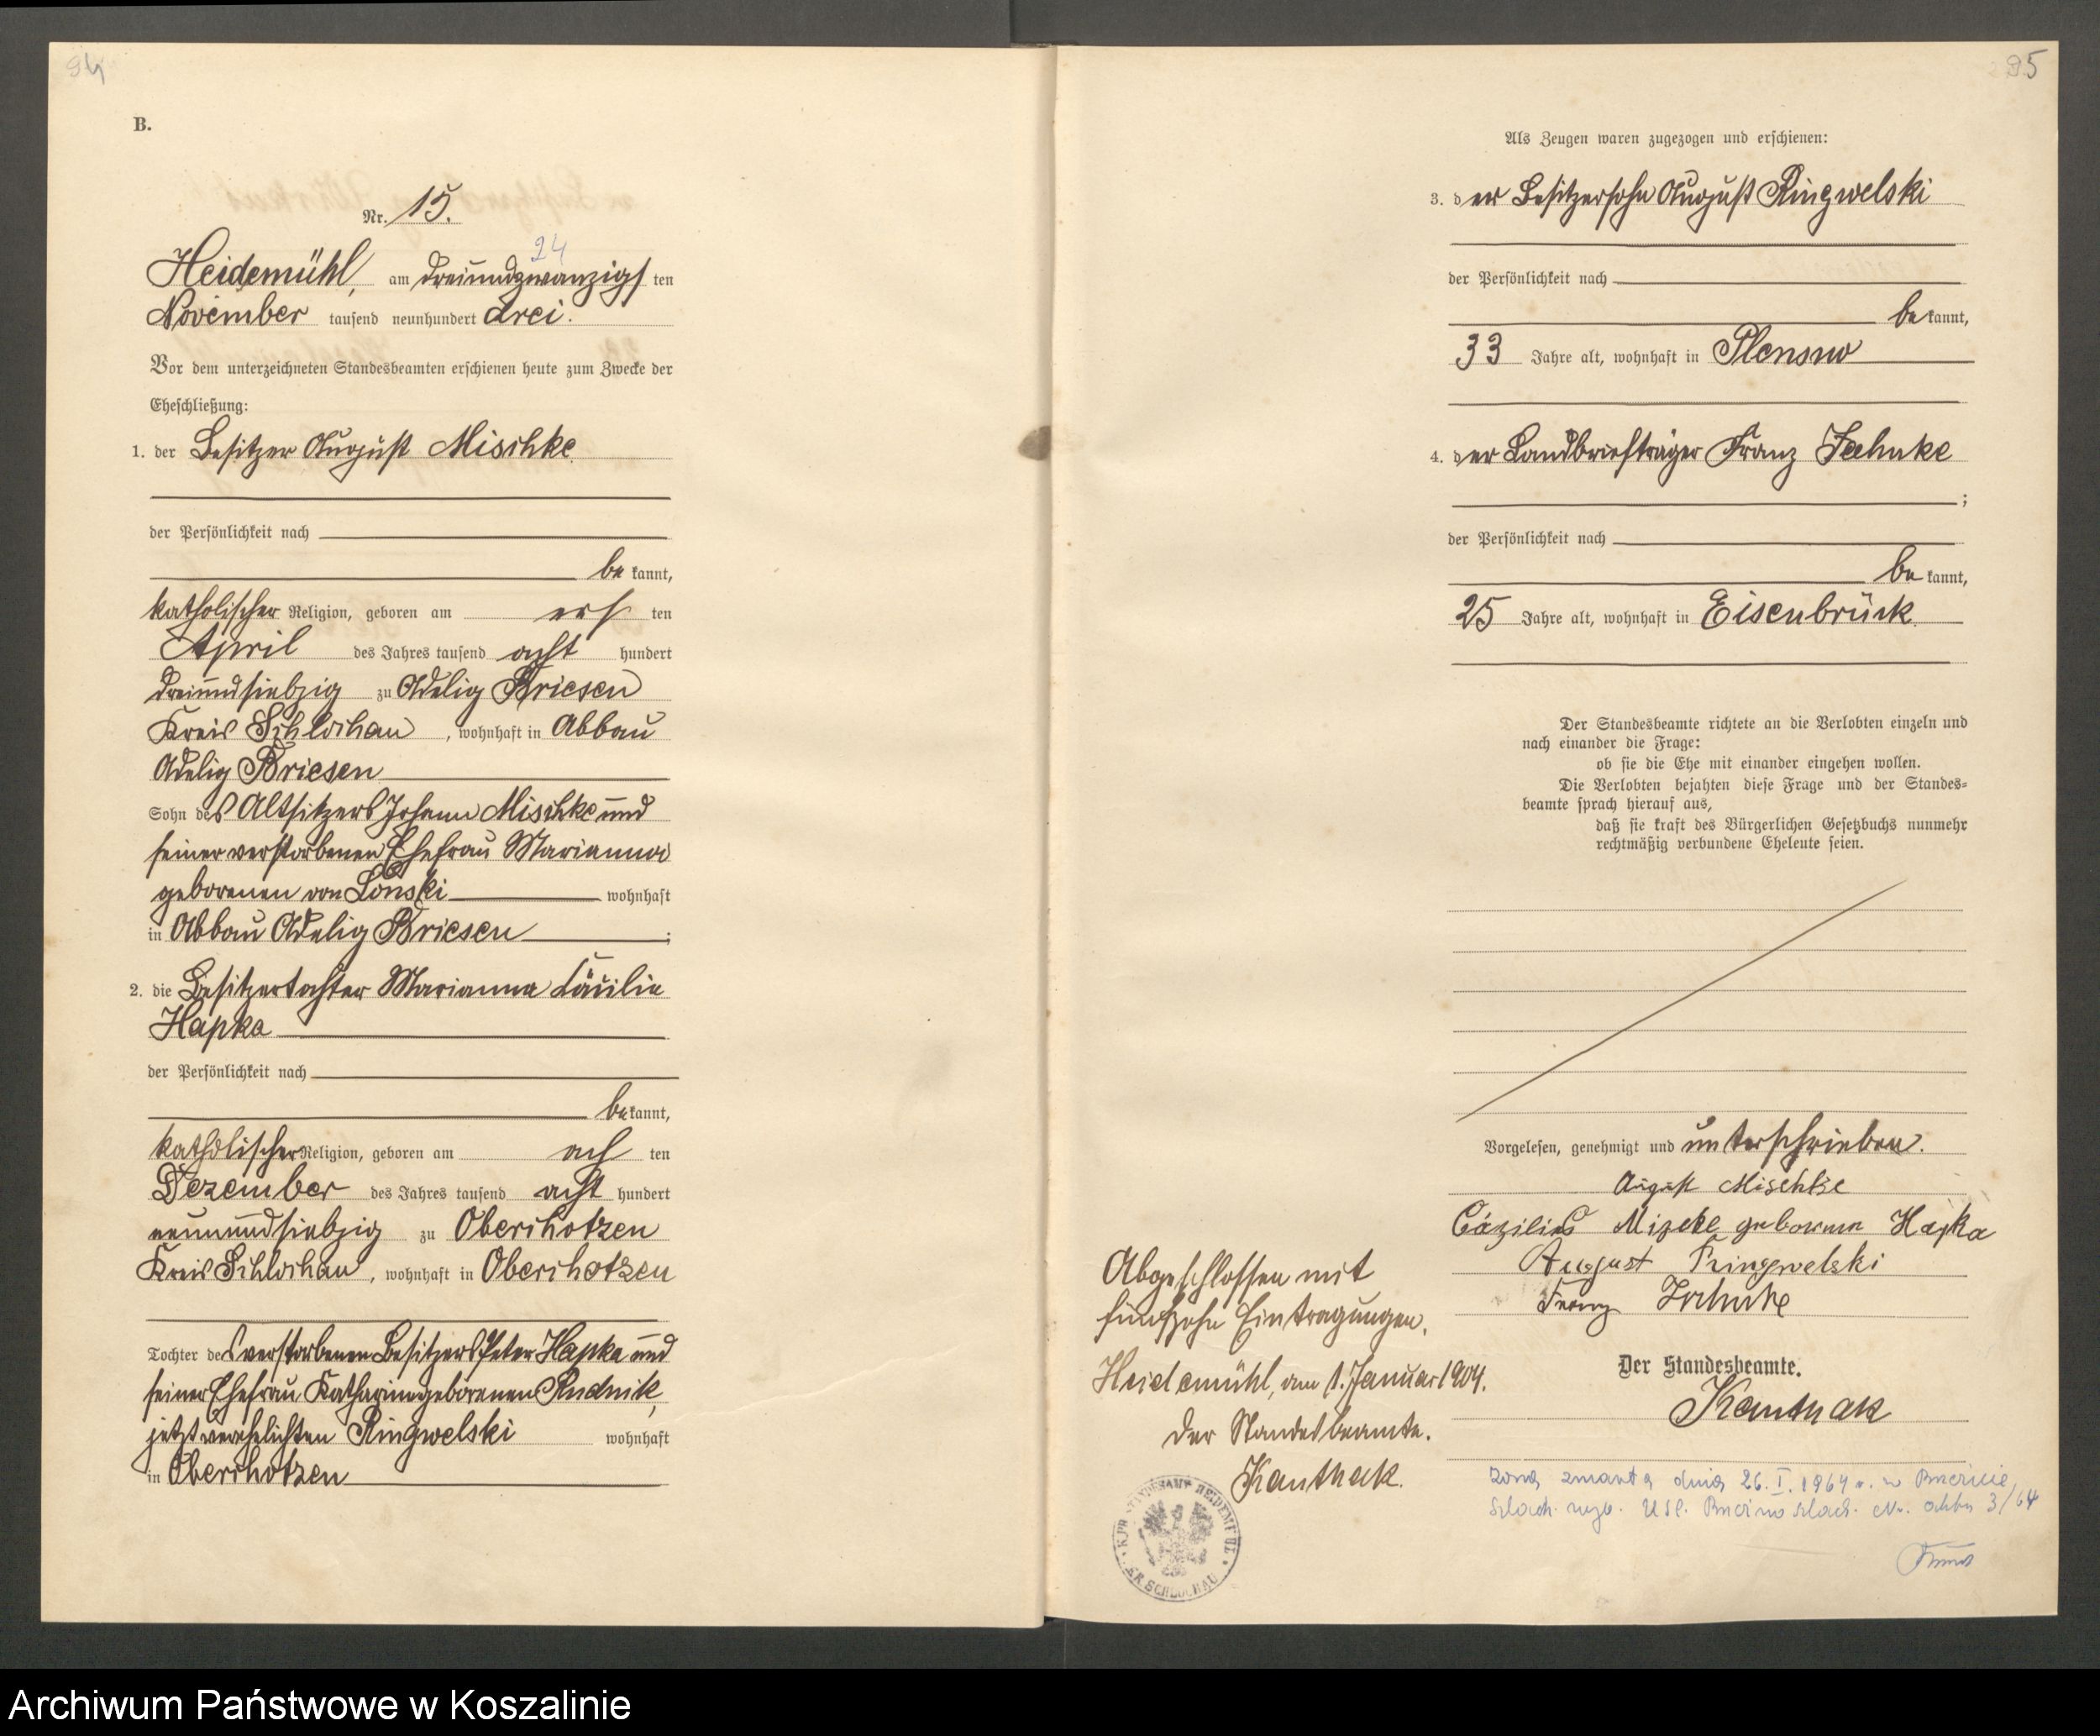 94
B.
Nr. 15.
24
Heidemühl, am dreiundzwanzigs ten
November tausend neunhundert drei.
Vor dem unterzeichneten Standesbeamten erschienen heute zum Zwecke der
Eheschließung:
1. der Besitzer August Mischke
der Persönlichkeit nach
be kannt,
katholischer Religion, geboren am ers ten
April des Jahres tausend acht hundert
dreiundsiebzig zu Adelig Briesen
Kreis Schlochau, wohnhaft in Abbau
Adelig Briesen
Sohn des Altsitzers Johann Mischke und
seiner verstorbenen Ehefrau Marianna
geborenen von Lonski wohnhaft
in Abbau Adelig Briesen;
2. die Besitzertochter Marianna Cäcilia
Hapka
der Persönlichkeit nach
be kannt,
katholischer Religion, geboren am ach ten
Dezember des Jahres tausend acht hundert
neunundsiebzig zu Oberchotzen
Kreis Schlochau, wohnhaft in Oberchotzen
Tochter des verstorbenen Besitzers Peter Hapka und
seiner Ehefrau Katharina geborenen Rudnik,
jetzt verehelichten Ringwelski wohnhaft
in Oberchotzen
95
Als Zeugen waren zugezogen und erschienen:
3. der Besitzersohn August Ringwelski
der Persönlichkeit nach
be kannt,
33 Jahre alt, wohnhaft in Plensno
4. der Landbriefträger Franz Jachnke
;
der Persönlichkeit nach
be kannt,
25 Jahre alt, wohnhaft in Eisenbrück
Der Standesbeamte richtete an die Verlobten einzeln und
nach einander die Frage:
ob sie die Ehe mit einander eingehen wollen.
Die Verlobten bejahten diese Frage und der Standes=
beamte sprach hierauf aus,
daß sie kraft des Bürgerlichen Gesetzbuchs nunmehr
rechtmäßig verbundene Eheleute seien.
Vorgelesen, genehmigt und unterschrieben.
August Mischke
Cäzilia geborene Hapka
August Ringwelski
Franz Jachnke
Der Standesbeamte.
Kanthak
Abgeschlossen mit
fünfzehn Eintragungen.
Heidemühl, am 1. Januar 1904.
Der Standesbeamte.
Kanthak.
K. PR. STANDESAMT HEIDEMÜHL
KR. SCHLOCHAU
Żona zmarła dnia 26. I. 1964 r. w
USC. Nr. aktu 3/64
Archiwum Państwowe w Koszalinie